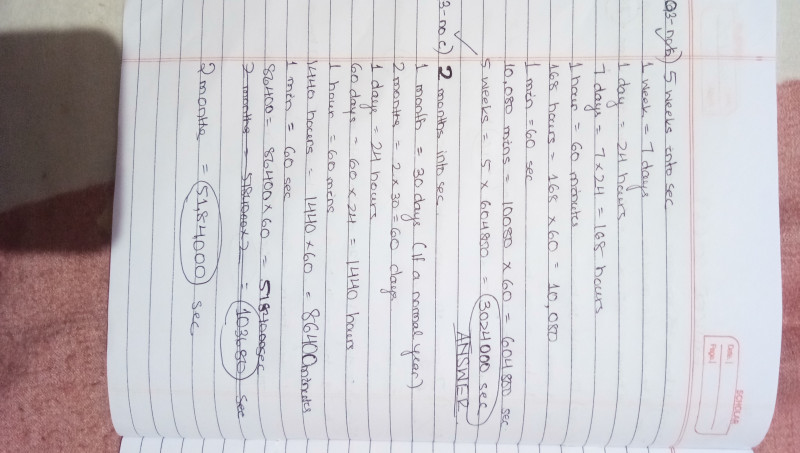 SCHOLAR
Date:
Page:
Q3- no b) 5 weeks into sec
1 week = 7 days
1 day = 24 hours
7 days = 7 x 24 = 168 hours
1 hour = 60 minutes
168 hours = 168 x 60 = 10,080
1 min = 60 sec
10,080 mins = 10080 x 60 = 604800 sec
5 weeks = 5 x 604800 = 3024000 sec
ANSWER
3- no c) 2 months into sec.
1 month = 30 days (If a normal year)
2 months = 2 x 30 = 60 days
1 day = 24 hours
60 days = 60 x 24 = 1440 hours
1 hour = 60 mins
1440 hours = 1440 x 60 = 86400 minutes
1 min = 60 sec
86400 = 86400 x 60 = 5184000 sec
2 months = 5184000 x 2 = 103680 sec
2 months = 5184000 sec